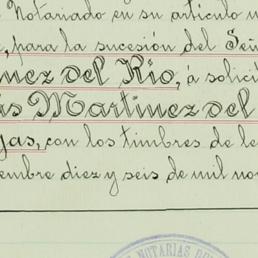 Notariado en su artículo
para la sucesión del Señ
nez del Rio, á solici
Martinez del
jas, con los timbres de le
embre diez y seis de mil no
NOTARIAS DE